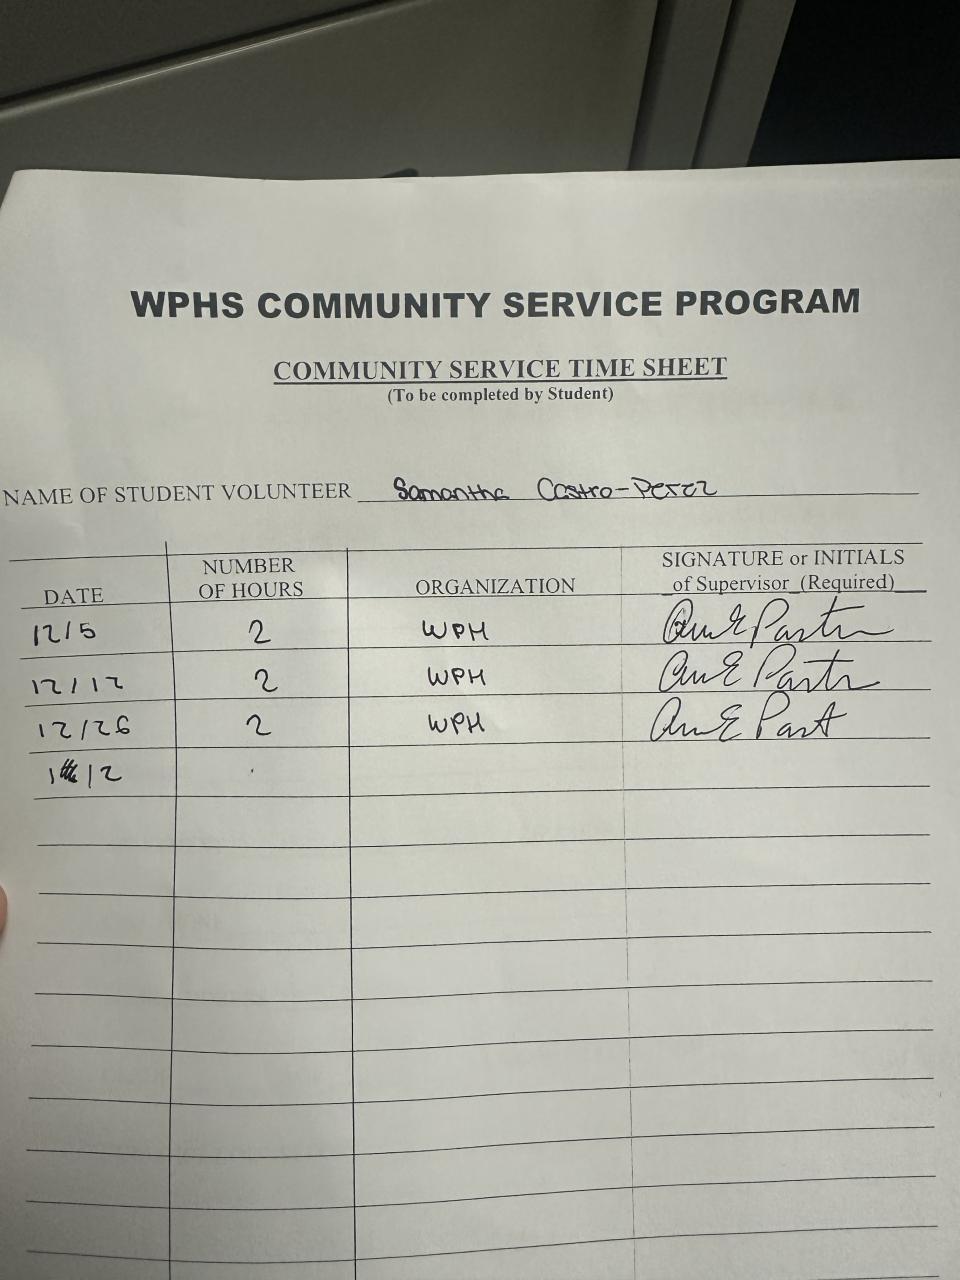 WPHS COMMUNITY SERVICE PROGRAM
COMMUNITY SERVICE TIME SHEET
(To be completed by Student)
NAME OF STUDENT VOLUNTEER Samantha Castro-Perez
DATE NUMBER OF HOURS ORGANIZATION SIGNATURE or INITIALS of Supervisor (Required)
12/5 2 WPH
12/12 2 WPH
12/26 2 WPH
1/2